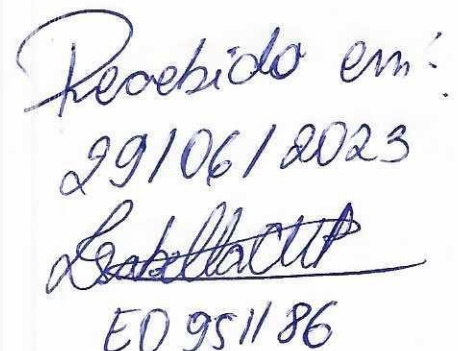 Recebido em:
29/06/2023
ED 951186